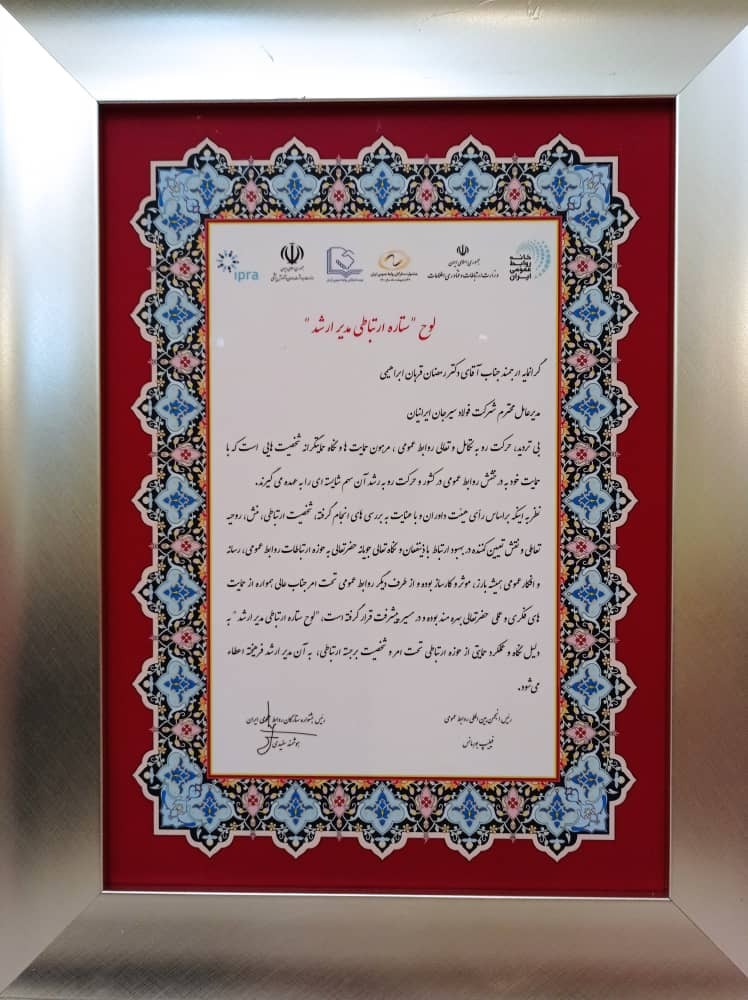 خانه
روابط
عمومی
ایران
جمهوری اسلامی ایران
وزارت ارتباطات و فناوری اطلاعات
جمهوری اسلامی ایران
ipra
لوح "ستاره ارتباطی مدیر ارشد"
گرانمایه ارجمند جناب آقای دکتر رمضان قربان ابراهیمی
مدیرعامل محترم شرکت فولاد سیرجان ایرانیان
بی تردید، حرکت رو به تکامل و تعالی روابط عمومی ، مرهون حمایت ها و نگاه حمایتگرانه شخصیت هایی است که با
حمایت خود به درخشش روابط عمومی در کشور و حرکت رو به رشد آن سهم شایسته ای را به عهده می گیرند.
نظر به اینکه براساس رأی هیئت داوران و با عنایت به بررسی های انجام گرفته، شخصیت ارتباطی، منش، روحیه
تعاملی و نقش تعیین کننده در بهبود ارتباط با ذینفعان و نگاه تعالی جویانه حضرتعالی به حوزه ارتباطات روابط عمومی، رسانه
و افکار عمومی همیشه بارز، موثر و کارساز بوده و از طرف دیگر روابط عمومی تحت امر جناب عالی همواره از حمایت
های فکری و عملی حضرتعالی بهره مند بوده و در مسیر پیشرفت قرار گرفته است، "لوح ستاره ارتباطی مدیر ارشد" به
دلیل نگاه و عملکرد حمایتی از حوزه ارتباطی تحت امر و شخصیت برجسته ارتباطی، به آن مدیر ارشد فرهیخته اعطاء
می شود.
رئیس انجمن بین المللی روابط عمومی
فیلیپ بورمانس
رئیس جشنواره ستارگان روابط عمومی ایران
هوشمند سفیدی